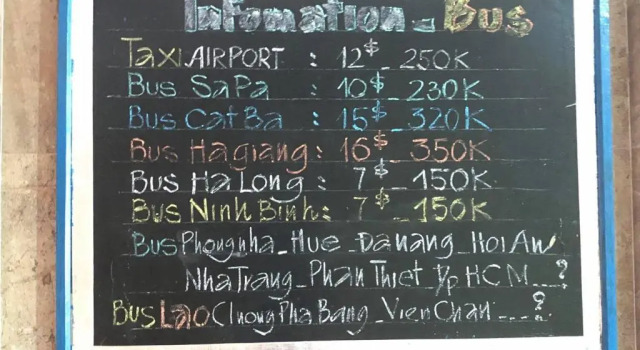 Infomation_Bus
Taxi AIRPORT : 12$_250K
Bus SaPa : 10$_230K
Bus Cat Ba : 15$_320K
Bus Hagiang : 16$_350K
Bus Ha Long : 7$_150K
Bus Ninh Binh : 7$_150K
Bus Phongnha_Hue_Danang_Hoi An
Nha Trang_Phan Thiet T/p HCM__?
Bus Lao Clnong Pha Bang_Vien Chan ---?